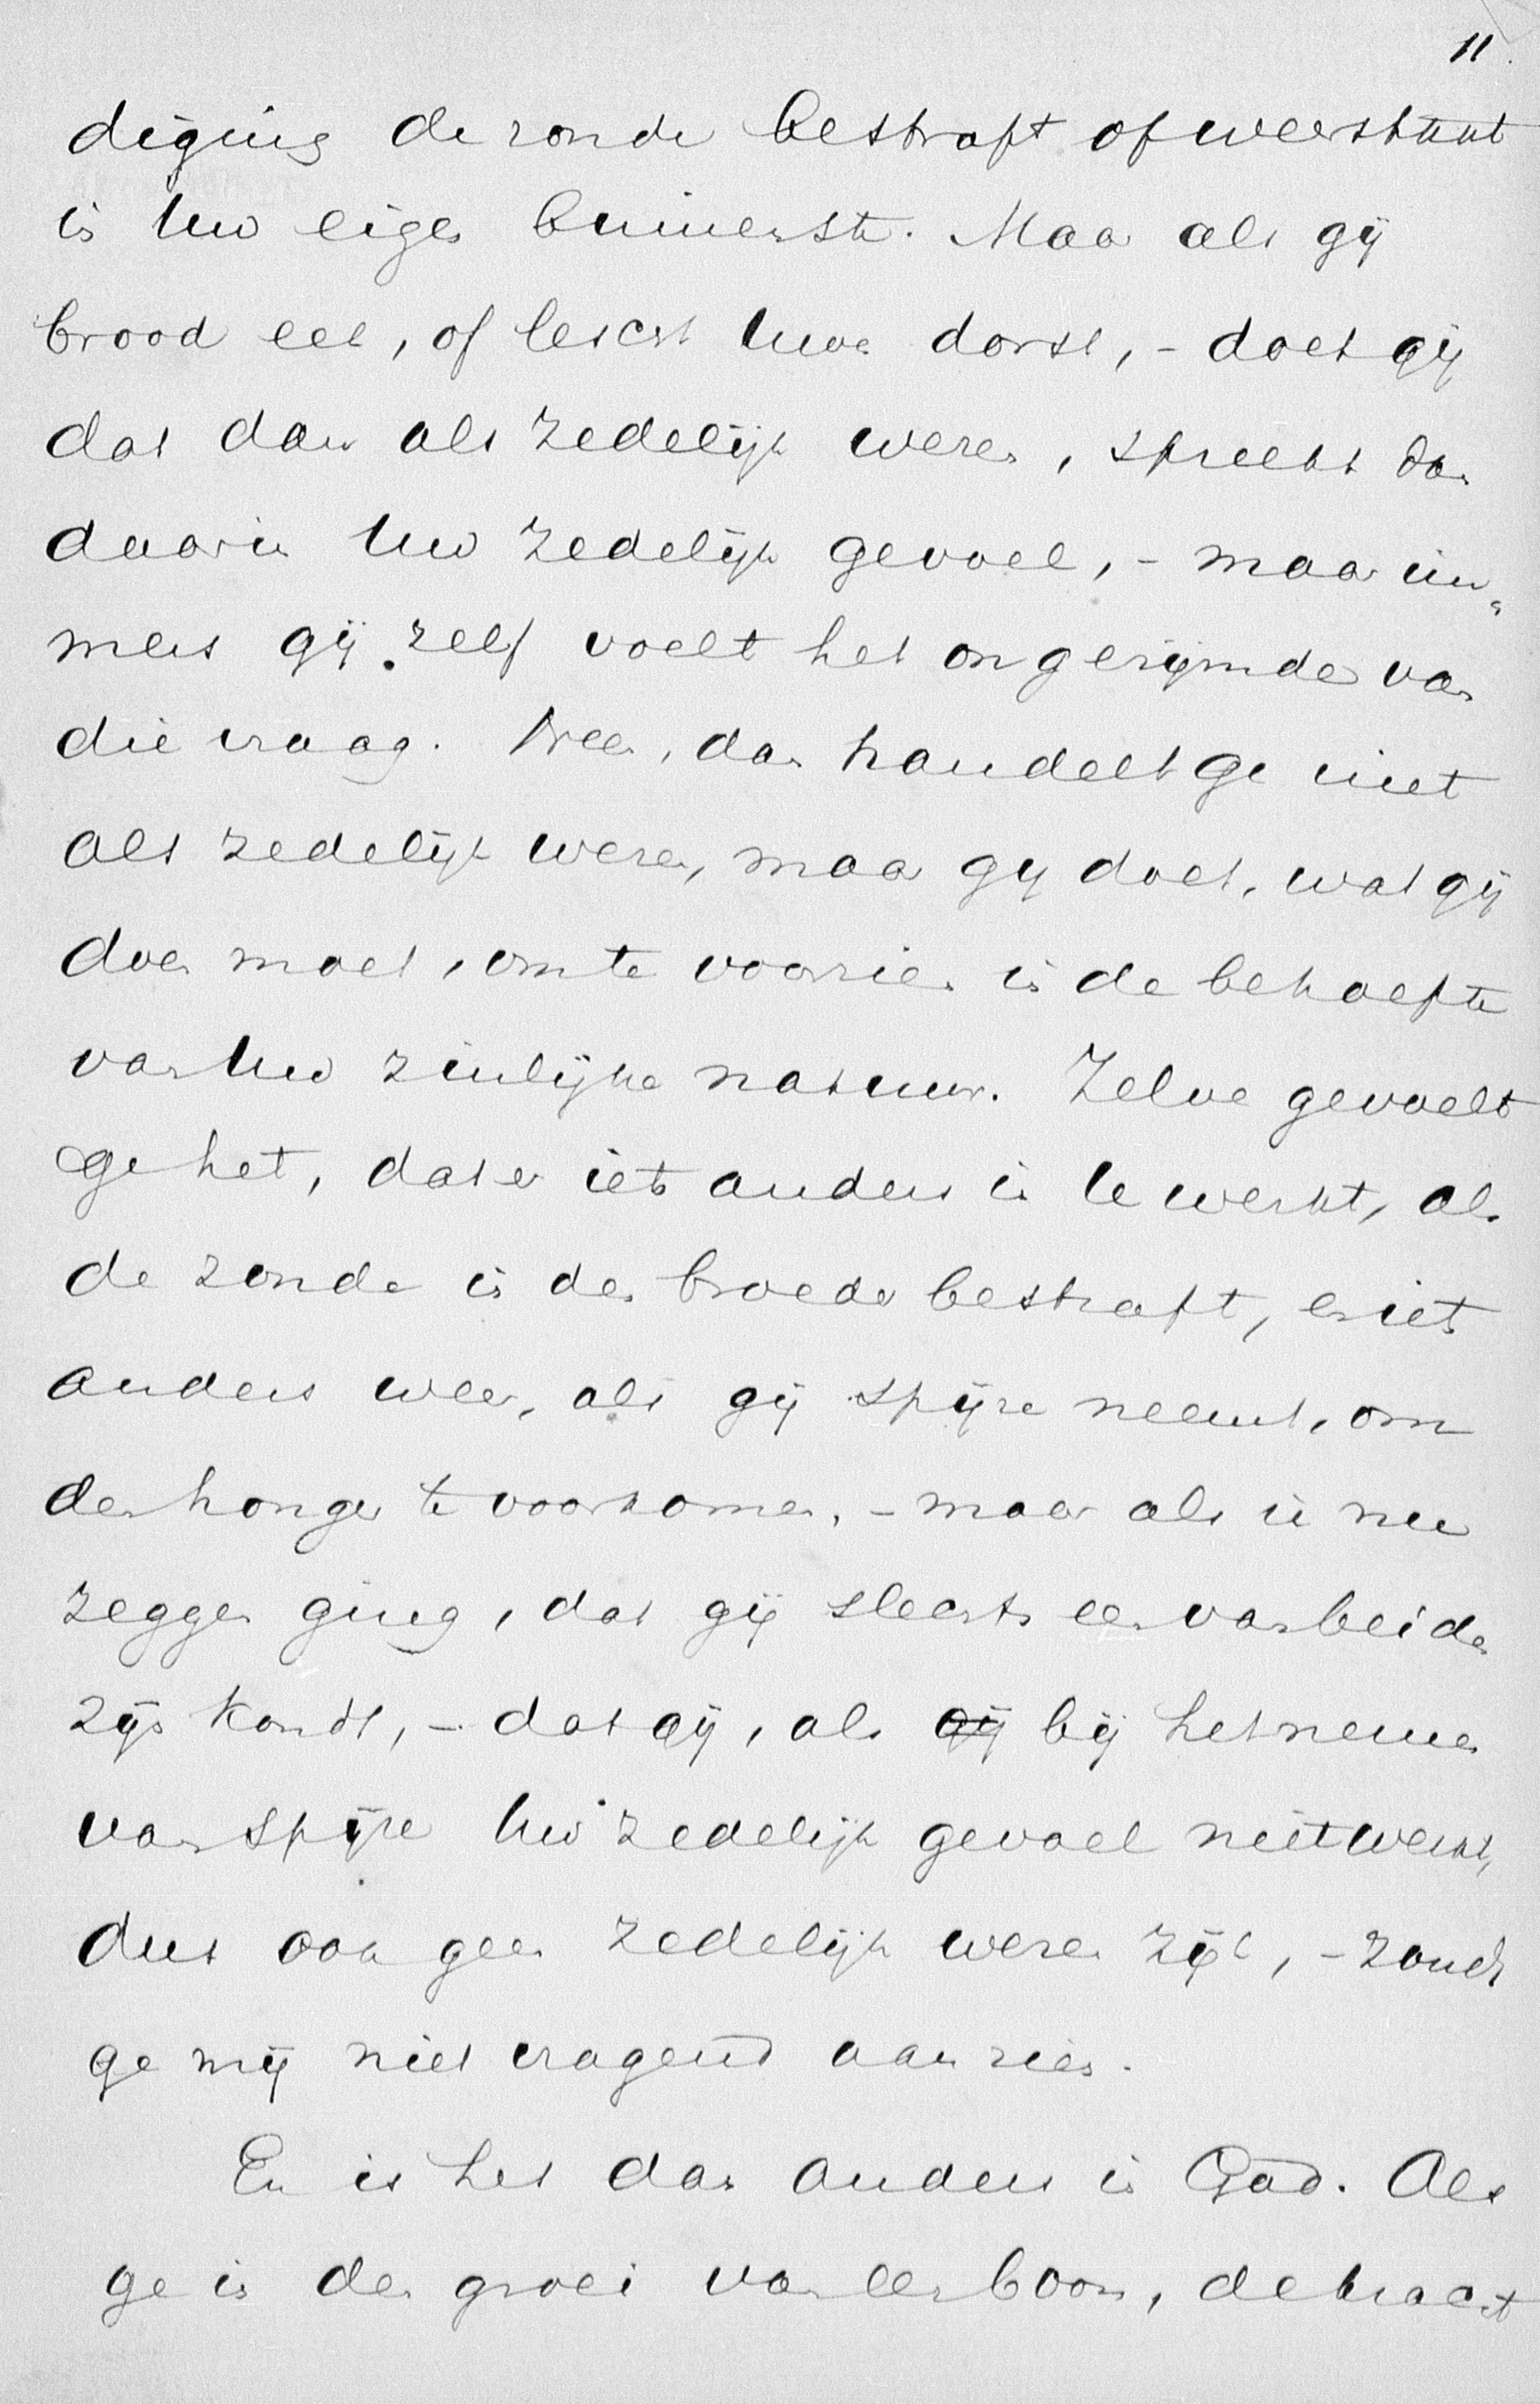 11.
diging de zonde bestraft of weerstaat
in Uw eigen binnenste. Maar als gij
brood eet, of lescht Uwe dorst, - doet gij
dat dan als zedelijk wezen, spreekt dan
daarin Uw zedelijk gevoel, - maar im„
mers gij zelf voelt het ongerijmde van
die vraag. Neen, dan handelt ge niet
als zedelijk wezen, maar gij doet, wat gij
doen moet, om te voorzien in de behoefte
van Uw zinlijke natuur. Zelve gevoelt
ge het, dat er iets anders in U werkt, als
de zonde in den broeder bestraft, en iets
anders weer, als gij spijze neemt, om
den honger te voorkomen, - maar als ik nu
zeggen ging, dat gij slechts een van beiden
zijn kondt, - dat gij, als gij bij het nemen
van spijze Uw zedelijk gevoel niet werkt,
dus ook geen zedelijk wezen zijt, - zoudt
ge mij niet vragend aanzien.
En is het dan anders in God. Als
ge in den groei van een boom, de kracht